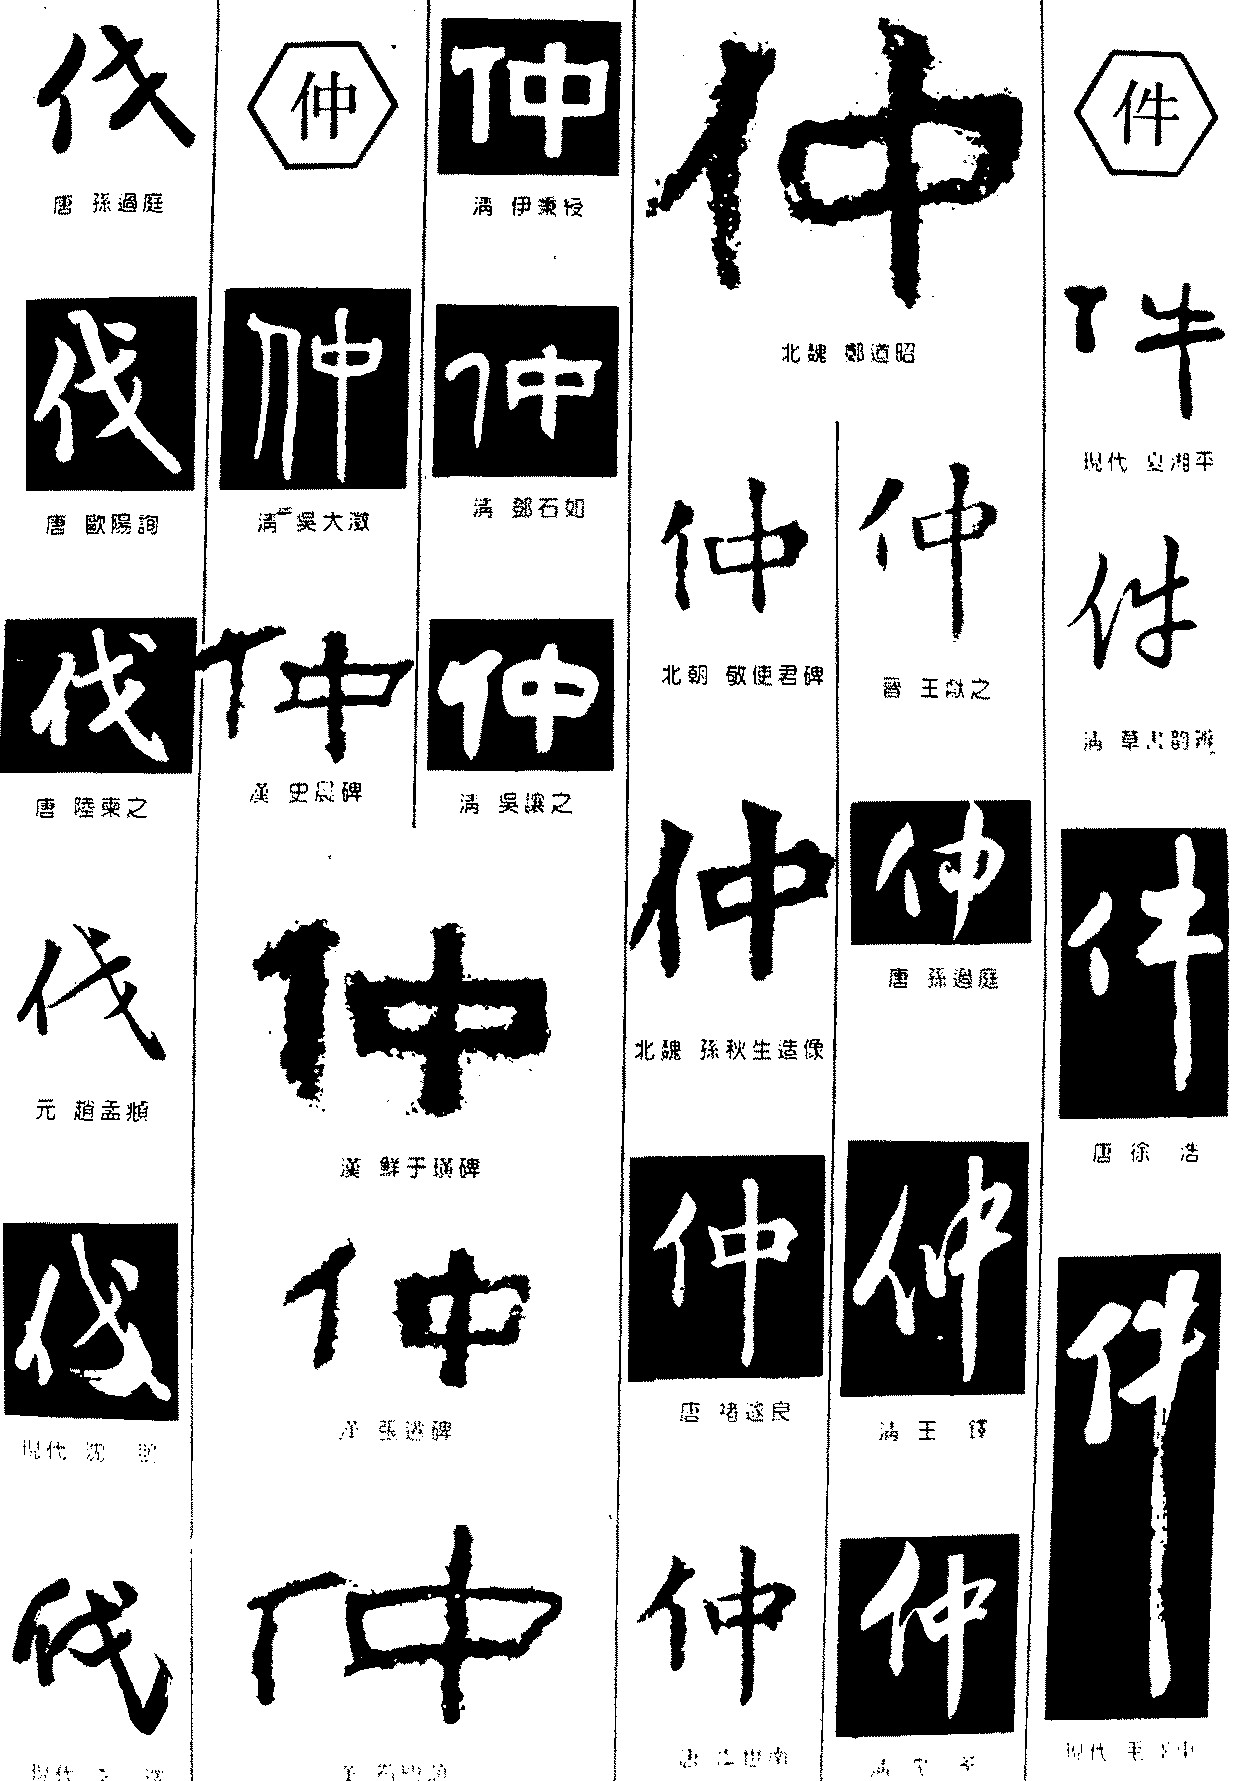 伐
唐 孫過庭
伐
唐 歐陽詢
伐
唐 陸柬之
伐
元 趙孟頫
伐
現代 沈
伐
現代
仲
仲
清 吳大澂
仲
漢 史晨碑
仲
清 伊秉綬
仲
清 鄧石如
仲
清 吳讓之
仲
漢 鮮于璜碑
仲
漢 張遷碑
仲
漢 石門頌
仲
北魏 鄭道昭
仲
北朝 敬使君碑
仲
北魏 孫秋生造像
仲
唐 褚遂良
仲
唐 虞世南
仲
晉 王獻之
仲
唐 孫過庭
仲
清 王鐸
仲
清
件
件
現代 夏湘平
件
清 草書韵辨
件
唐 徐浩
件
現代 毛